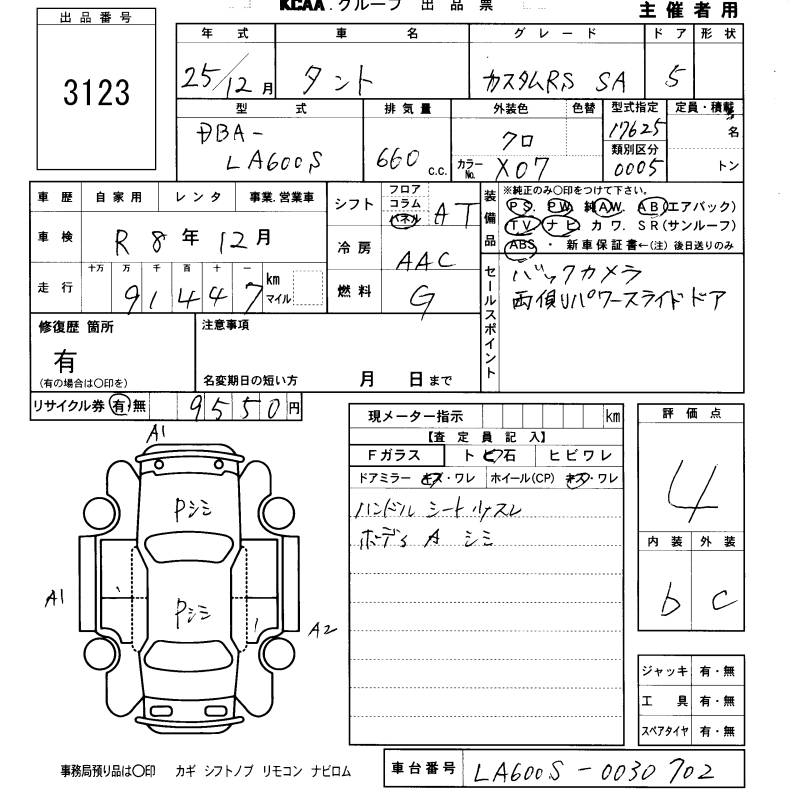 KCAA.グループ 出品票
主催者用
出品番号
3123
年式 車名 グレード ドア 形状
25/12月 タント カスタムRS SA 5
型式 排気量 外装色 色替 型式指定 定員・積載
DBA-
LA600S
660 c.c.
クロ
カラーNo. X07
17625
類別区分
0005
名
トン
車歴 自家用 レンタ 事業.営業車
車検 R8年12月
走行 十万 万 千 百 十 一
91447 km マイル
シフト フロア コラム パネル AT
冷房 AAC
燃料 G
装備品
※純正のみ○印をつけて下さい。
PS. PW. 純AW. AB(エアバック)
TV ナビ カワ. SR(サンルーフ)
ABS ・ 新車保証書←(注) 後日送りのみ
セールスポイント
バックカメラ
両側パワースライドドア
修復歴 箇所
有
(有の場合は○印を)
注意事項
名変期日の短い方 月 日まで
リサイクル券 有・無 9550円
現メーター指示 km
【査定員記入】
Fガラス トビ石 ヒビワレ
ドアミラー キズ・ワレ ホイール(CP) キズ・ワレ
ハンドル シート スレ
ボディ A シミ
評価点
4
内装 外装
b C
A1
Pシミ
Pシミ
A1
A2
ジャッキ 有・無
工具 有・無
スペアタイヤ 有・無
事務局預り品は○印 カギ シフトノブ リモコン ナビロム
車台番号 LA600S-0030702